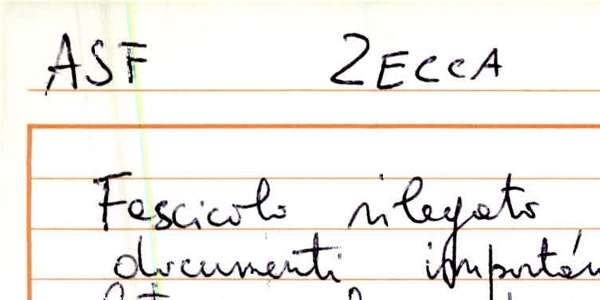 ASF ZECCA
Fascicolo rilegato
documenti